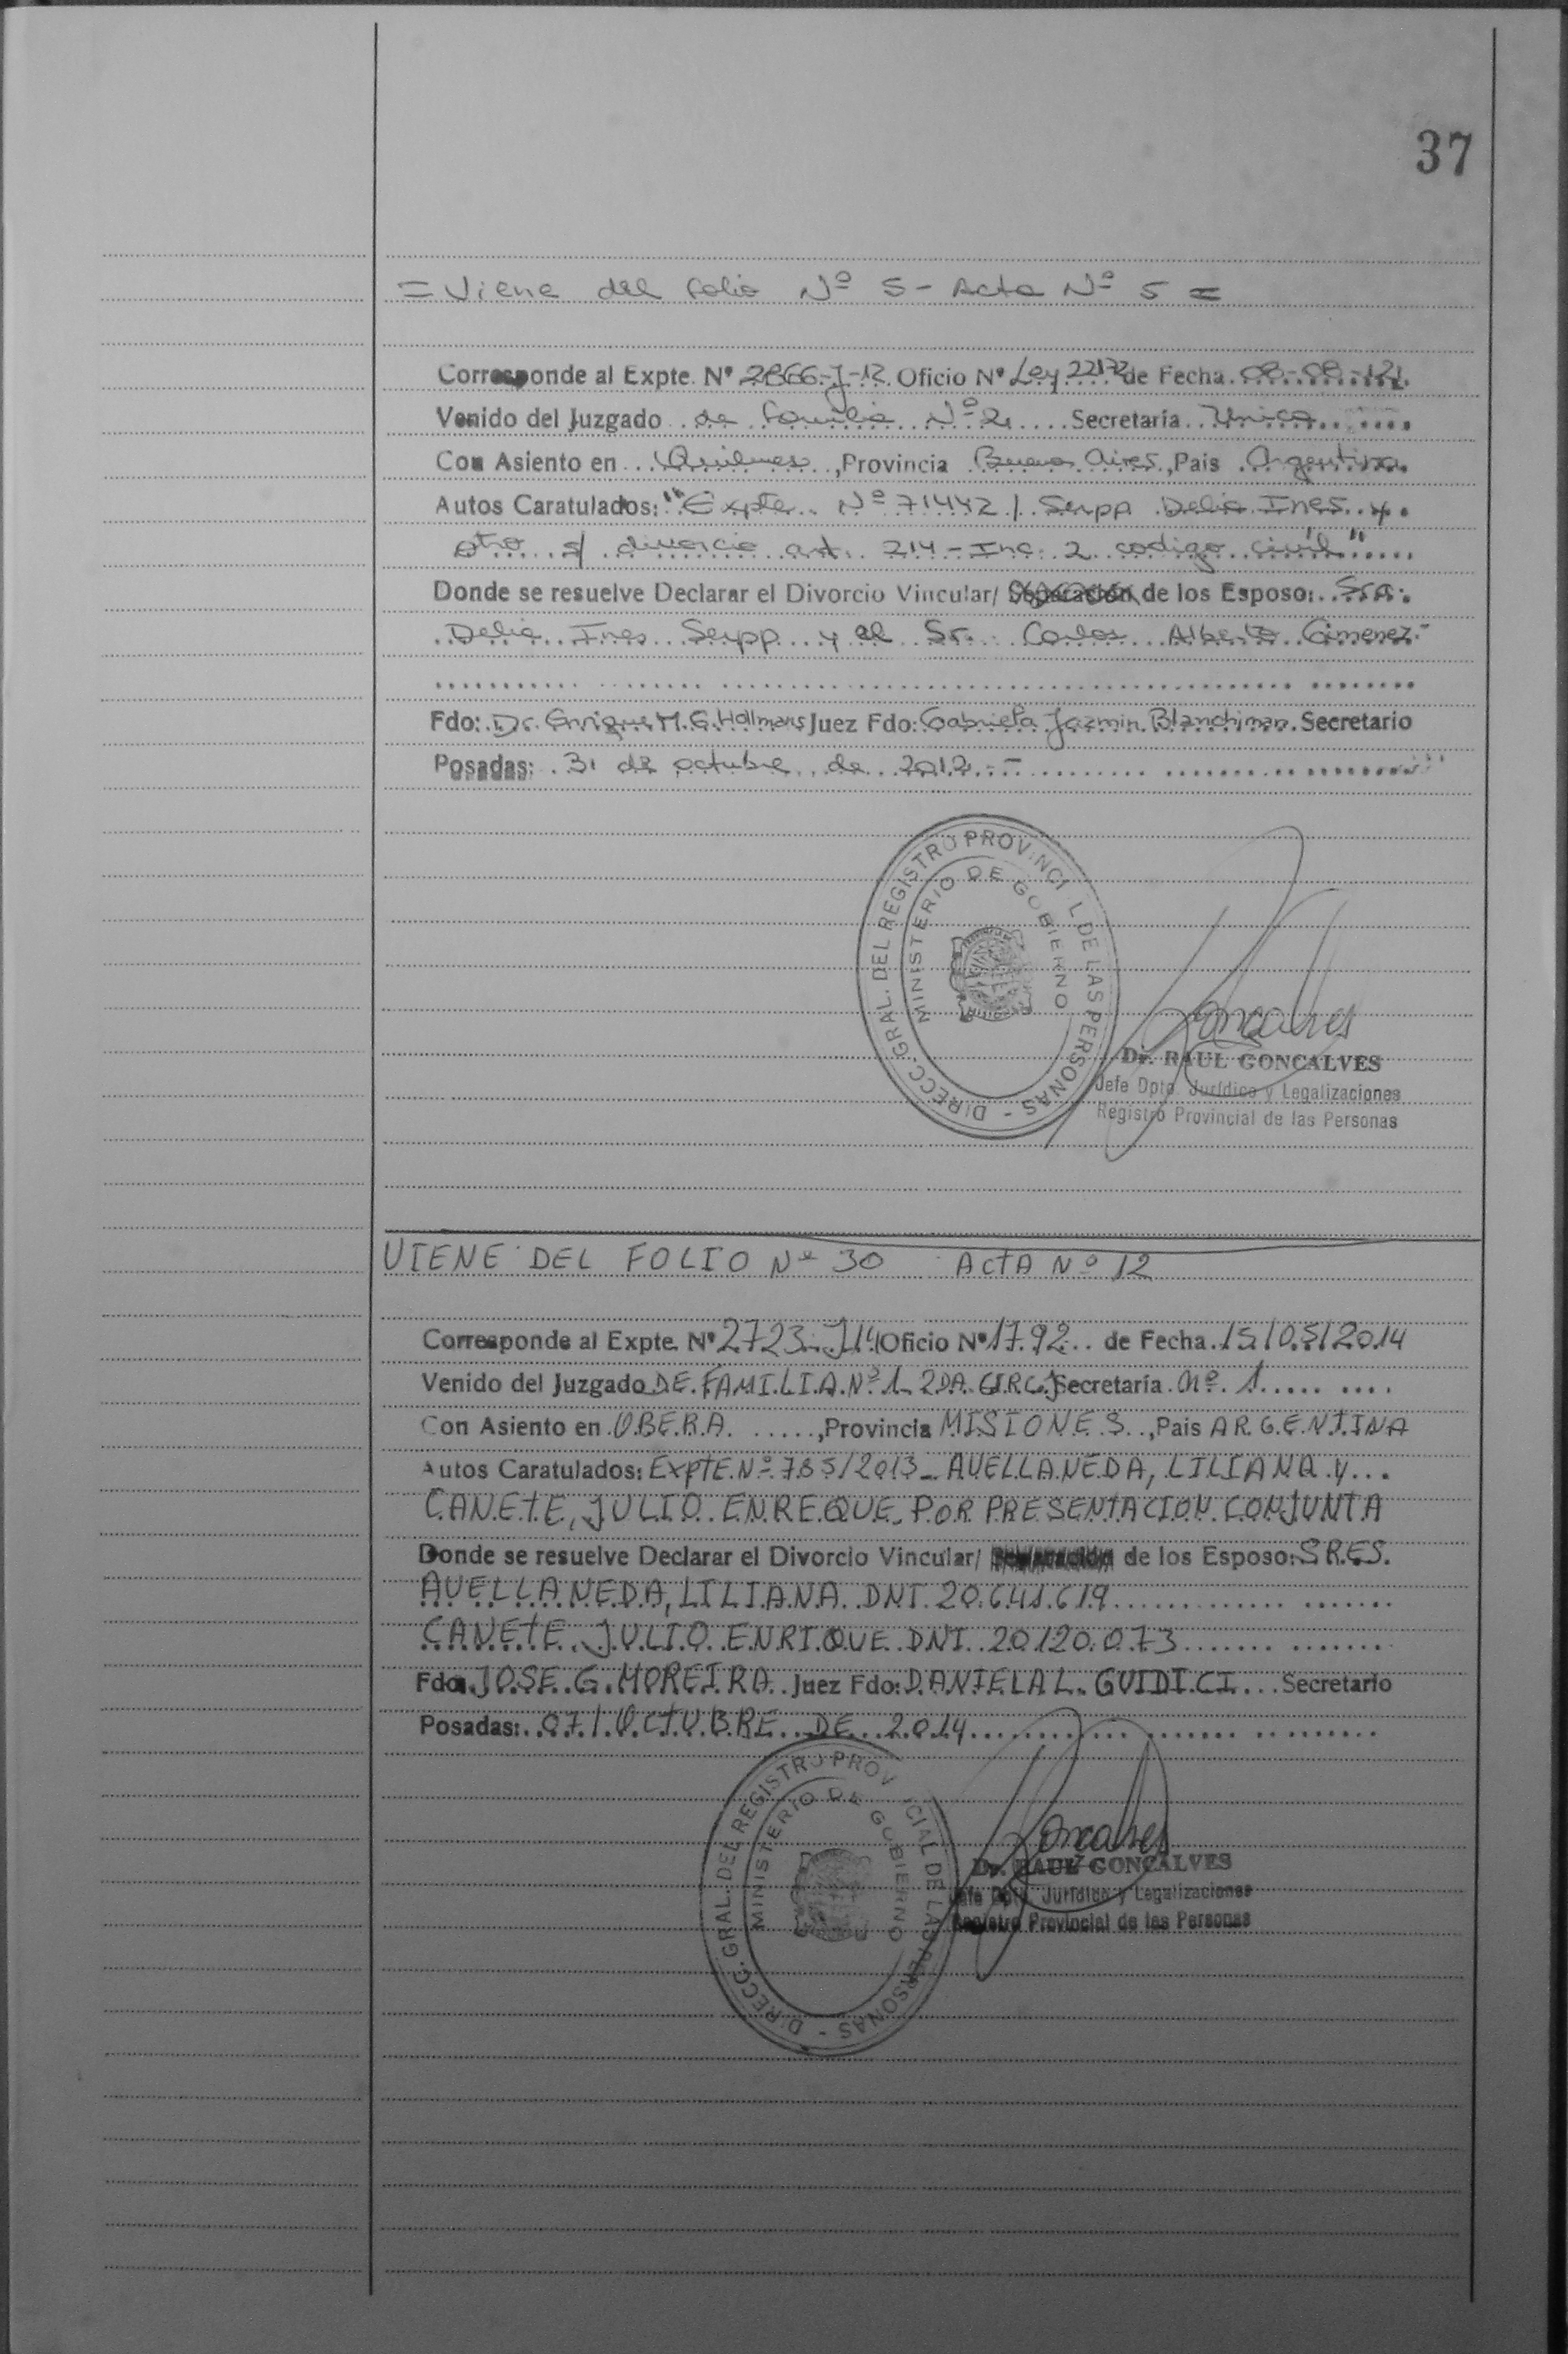 37
= Viene del folio Nº 5 - Acta Nº 5 =
Corresponde al Expte. Nº 2866-J-12 Oficio Nº Ley 22172 de Fecha 08-08-12
Venido del Juzgado de familia Nº 2 Secretaría Unica
Con Asiento en Quilmes, Provincia Buenos Aires, Pais Argentina
Autos Caratulados: "Expte. Nº 71442 / Seupp Delia Ines y
otro s/ divorcio art. 214 - Inc. 2 codigo civil"
Donde se resuelve Declarar el Divorcio Vincular/ Separación de los Esposo: Sra.
Delia Ines Seupp y al Sr. Carlos Alberto Gimenez.-
Fdo: Dr. Enrique M. G. Hollmans Juez Fdo: Gabriela Jazmin Blanchiman Secretario
Posadas: 31 de octubre de 2012.-
DIRECC. GRAL. DEL REGISTRO PROVINCI L DE LAS PERSONAS -
MINISTERIO DE GOBIERNO
Goncalves
Dr. RAUL GONCALVES
Jefe Dpto. Jurídico y Legalizaciones
Registro Provincial de las Personas
VIENE DEL FOLIO Nº 30 ACTA Nº 12
Corresponde al Expte. Nº 2723-J14 Oficio Nº 1792 de Fecha 15/05/2014
Venido del Juzgado DE FAMILIA Nº 1 2DA CIRC J Secretaría Nº 1
Con Asiento en OBERA, Provincia MISIONES, Pais ARGENTINA
Autos Caratulados: EXPTE. Nº 785/2013 - AVELLANEDA, LILIANA y
CANETE, JULIO ENREQUE POR PRESENTACION CONJUNTA
Donde se resuelve Declarar el Divorcio Vincular/ Separación de los Esposo: SRES.
AVELLANEDA, LILIANA DNI 20.641.619
CANETE, JULIO ENRIQUE DNI 20120.073
Fdo: JOSE G. MOREIRA Juez Fdo: DANIELA L. GUIDICI Secretario
Posadas: 07/OCTUBRE DE 2014
DIRECC. GRAL. DEL REGISTRO PROV CIAL DE LAS PERSONAS -
MINISTERIO DE GOBIERNO
Goncalves
Dr. RAUL GONCALVES
Jefe Dpto. Jurídico y Legalizaciones
Registro Provincial de las Personas